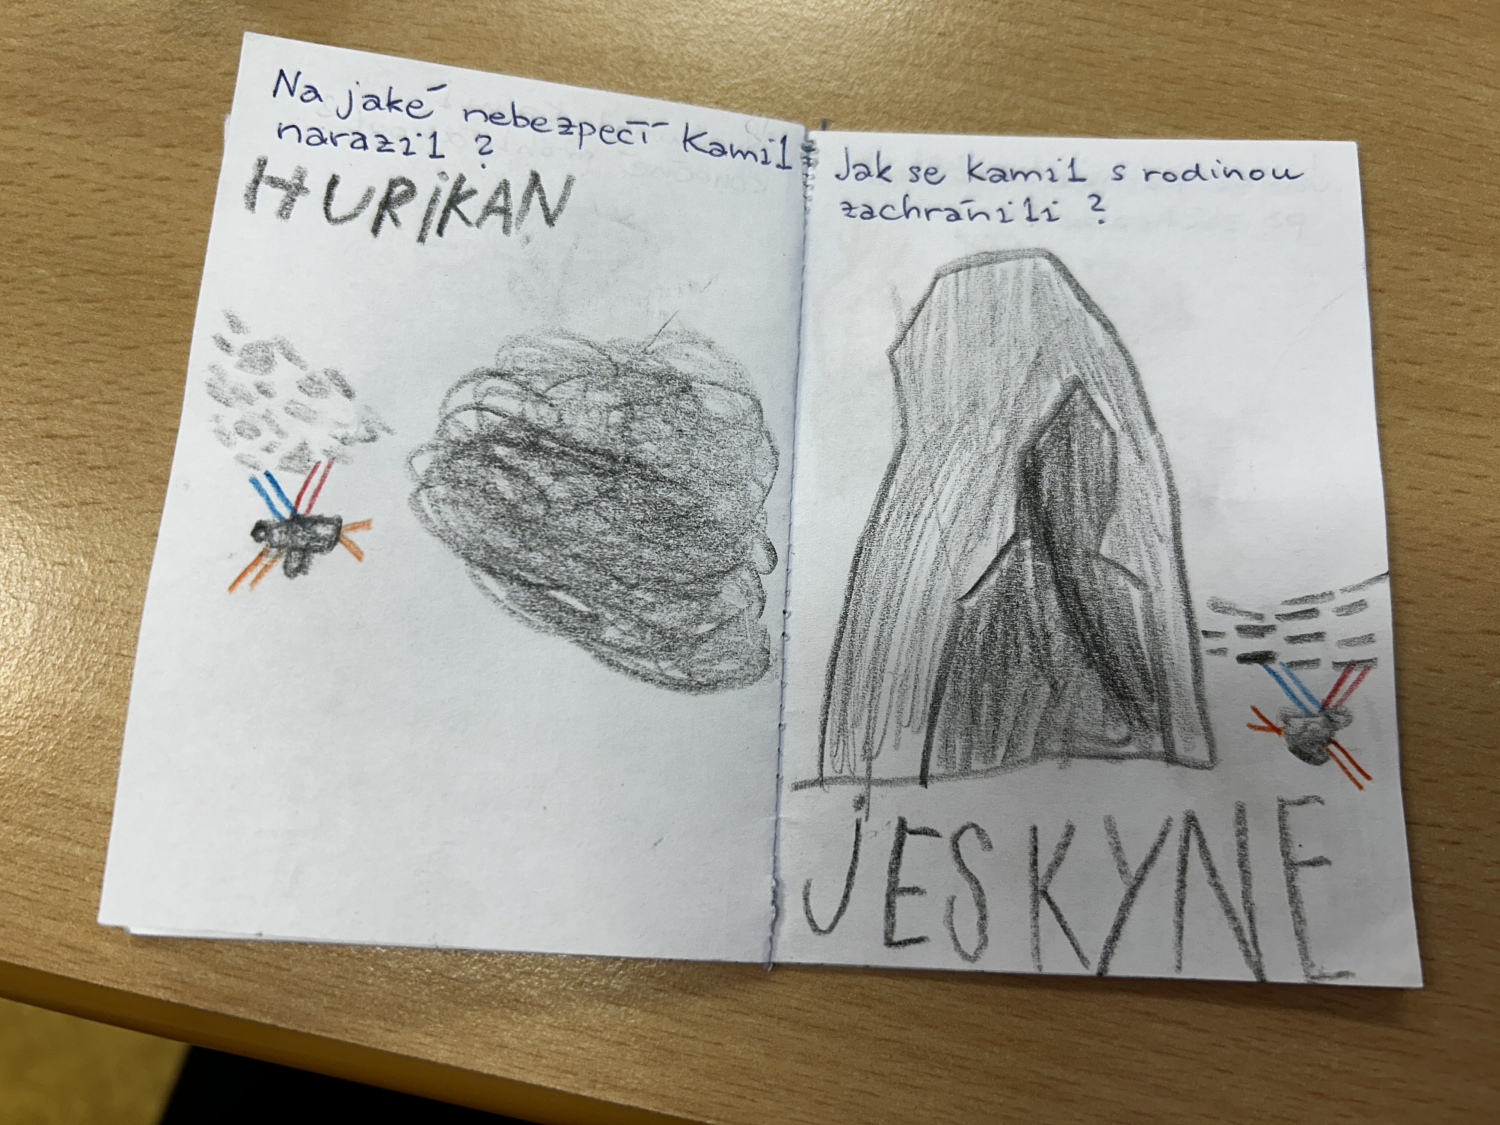 Na jaké nebezpečí Kamil
narazil ?
HURiKAN
Jak se Kamil s rodinou
zachránili ?
jESKYNE